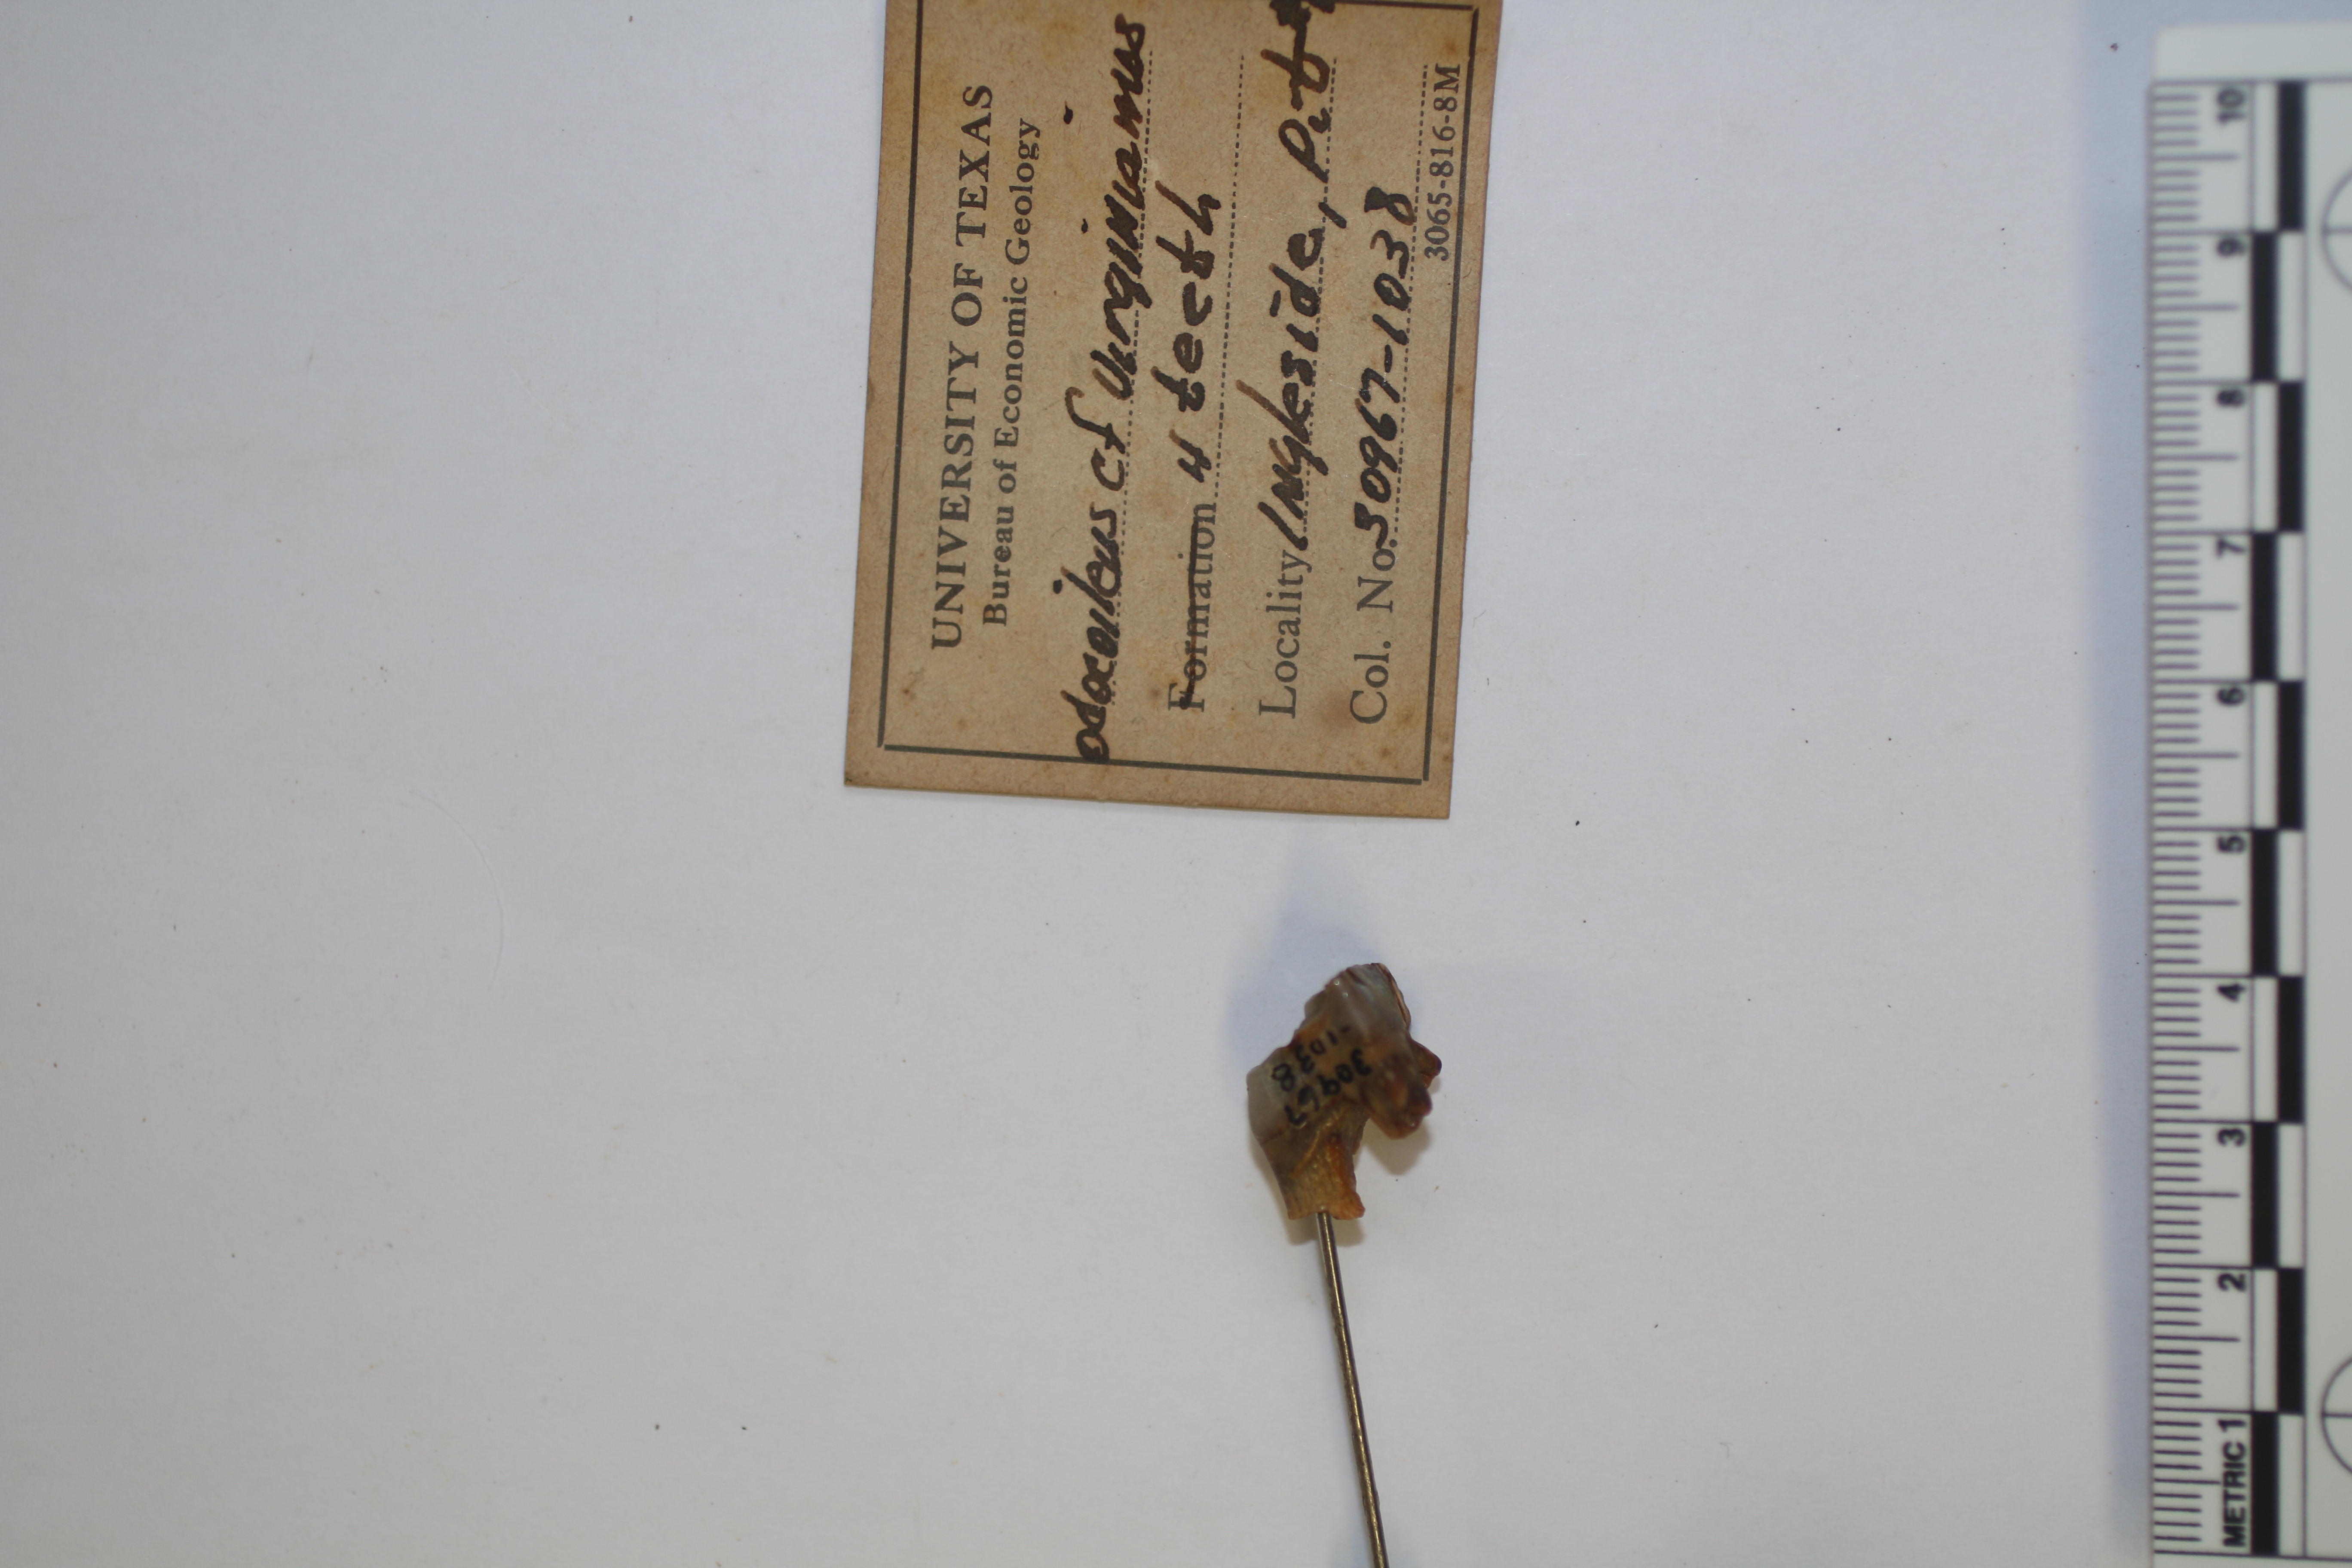 UNIVERSITY OF TEXAS
Bureau of Economic Geology
Odocoileus cf Virginianus
Formation 4 teeth
Locality Ingleside, Pit #1
Col. No. 30967-1038
3065-816-8M
30967
-1038
METRIC 1 2 3 4 5 6 7 8 9 10